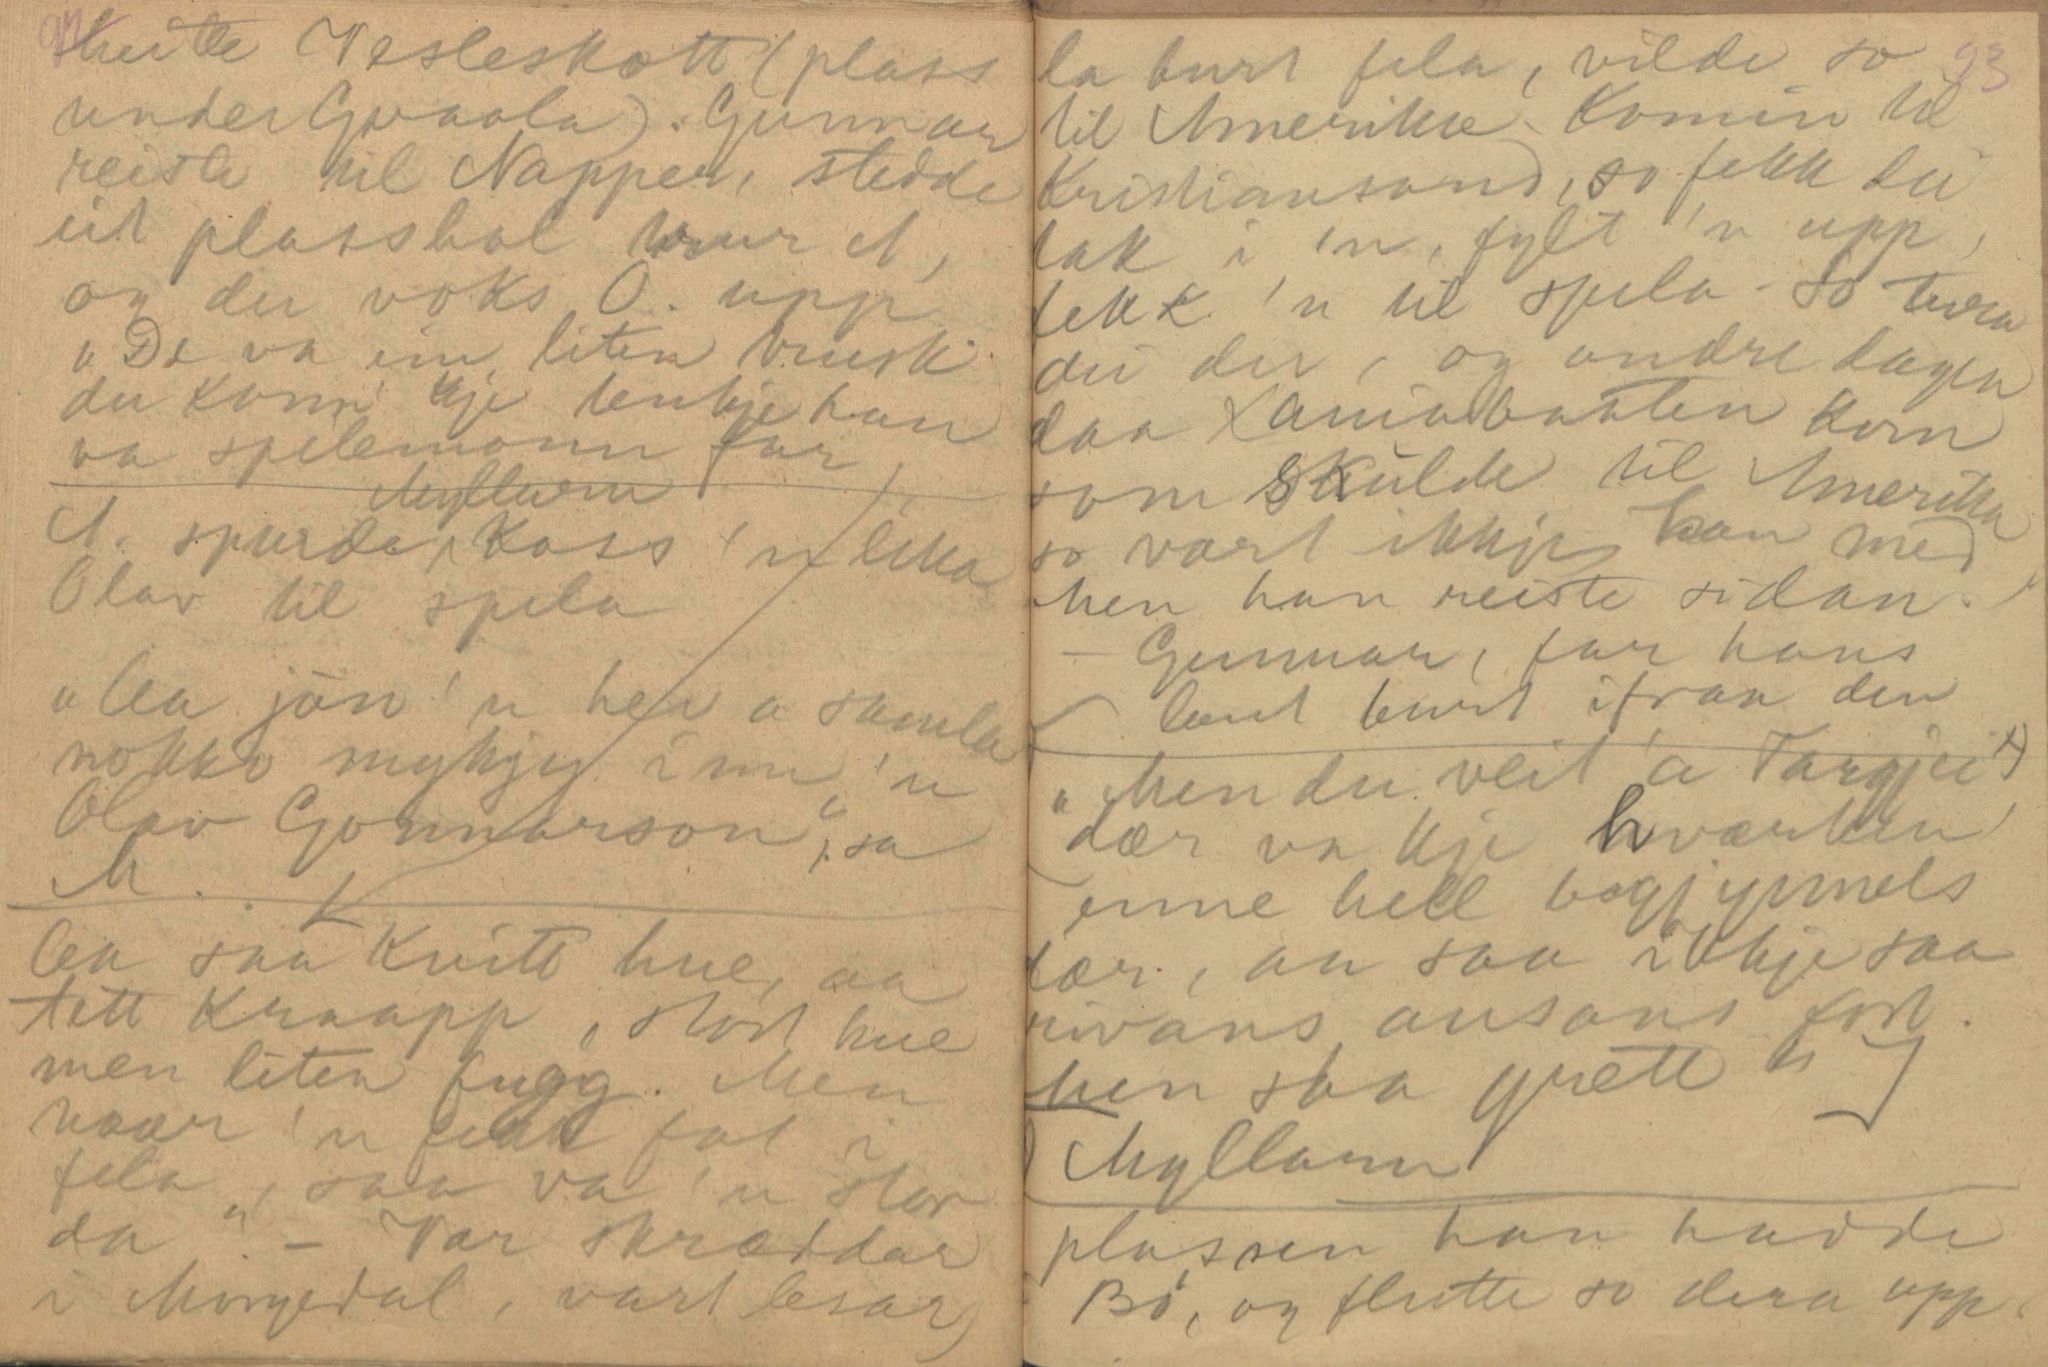 92
heitte Vesleskott (plass
under Gvaala). Gunnar
reiste til Napper, stedde
eit plasshol
og der voks O. upp
"De va ein liten
du konn' kje tenkje han
va spelemonn for,
Myllarn
A. spurde, Koss 'n lika
Olav til spela
"Aa jön 'n hev a samla
nokko mykjy inn 'n
Olav Gonnarson", sa
M.
Aa saa kvitt hue, aa
tett kraapp, stort hue
men liten fugg. Men
naar 'n fekk fat i
fela", saa va 'n stor
da". – Var skræddar
i Morgedal, vart lesar,
93
la burt fela, vilde so
til Amerika. Komin til
Kristiansand, so fekk dei
tak i 'n, fylt 'n upp,
fekk 'n til spela. So tura
dei der, og andre dagen
daa baaten kom
som skulde til Amerika
so vart ikkje han med
Men han reiste sidan.
– Gunnar, far hans
lant burt ifraa den
"Men du veit 'a Targjei
dær va kje hvorken
enne hell bogjynnels
dær, an saa ikkje saa
ansans fort.
Men saa grætt"
Myllarn
plassen han hadde
Bö, og flutte so dera upp.